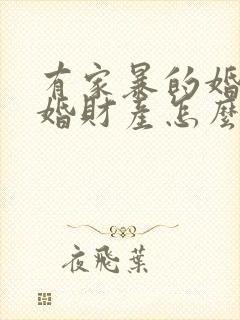 有家暴的婚
婚財產怎麼
夜飛葉